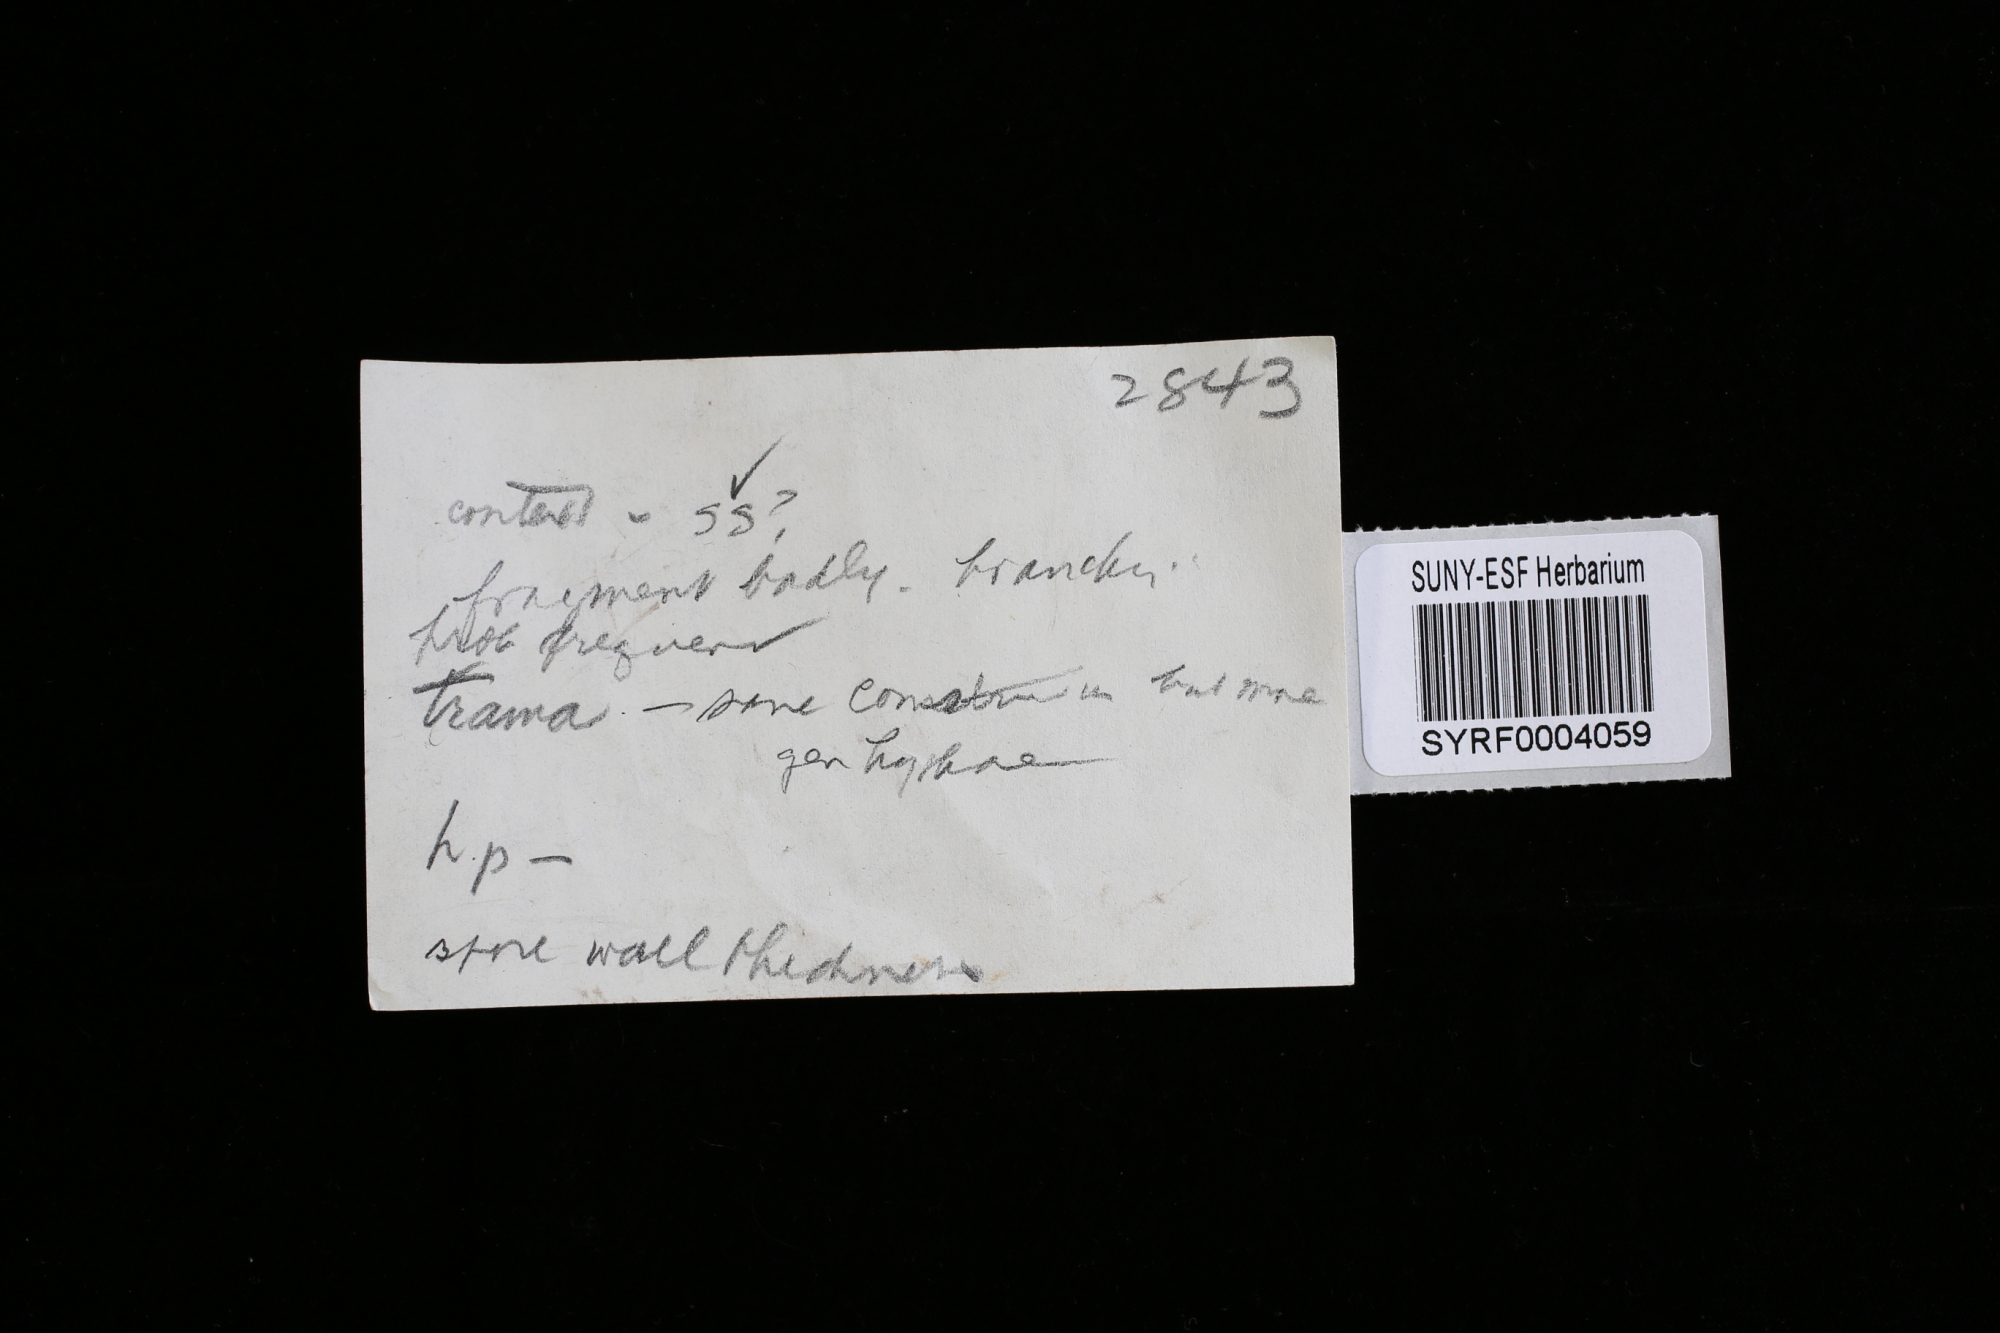 2843
context - SS?
fragment badly - branching
prob frequent
trama - same as but more
gen hyphae
h.p -
spore wall thickness
SUNY-ESF Herbarium
SYRF0004059